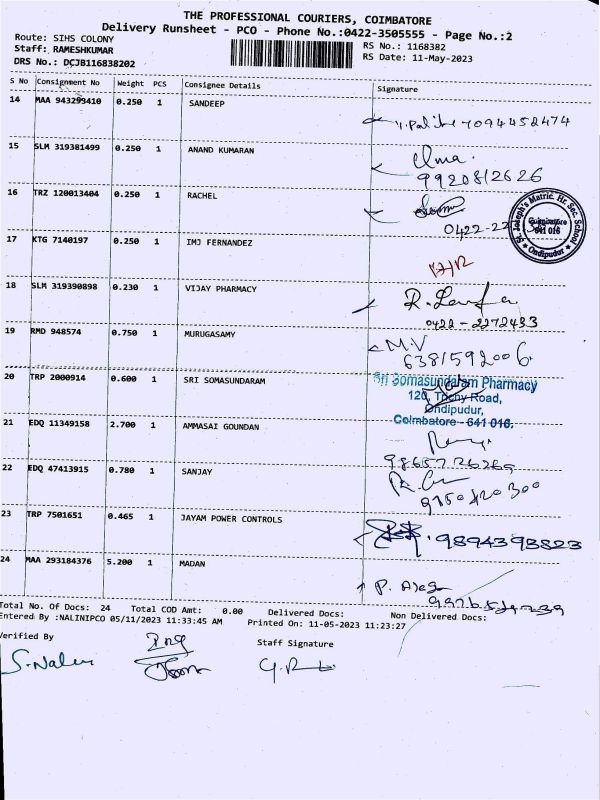 THE PROFESSIONAL COURIERS, COIMBATORE
Delivery Runsheet - PCO - Phone No.:0422-3505555 - Page No.:2
Route: SIHS COLONY
Staff: RAMESHKUMAR
DRS No.: DCJB116838202
RS No.: 1168382
RS Date: 11-May-2023
S No Consignment No Weight PCS Consignee Details Signature
14 MAA 943293410 0.250 1 SANDEEP
7094458474
15 SLM 319381499 0.250 1 ANAND KUMARAN
Uma.
9920812626
16 TRZ 120013404 0.250 1 RACHEL
0422-22
St. Joseph's Matric. Hr. Sec. School
Coimbatore
641 016
Ondipudur
17 KTG 7140197 0.250 1 IMJ FERNANDEZ
18 SLM 319390898 0.230 1 VIJAY PHARMACY
0422-2272433
19 RMD 948574 0.750 1 MURUGASAMY
M.V
6381592006
20 TRP 2000914 0.600 1 SRI SOMASUNDARAM
Sri Somasundaram Pharmacy
120, Trichy Road,
Ondipudur,
Coimbatore - 641 016.
21 EDQ 11349158 2.700 1 AMMASAI GOUNDAN
9865726269
22 EDQ 47413915 0.780 1 SANJAY
9150420300
23 TRP 7501651 0.465 1 JAYAM POWER CONTROLS
9894398823
24 MAA 293184376 5.200 1 MADAN
Total No. Of Docs: 24 Total COD Amt: 0.00 Delivered Docs: Non Delivered Docs:
Entered By :NALINIPCO 05/11/2023 11:33:45 AM Printed On: 11-05-2023 11:23:27
Verified By
Staff Signature